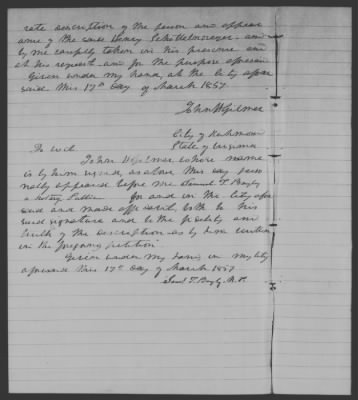 rate description of the person and appear
ance of the said Henry Schottelmeyer and
by me carefully taken in his presence and
at his request and for the purpose aforesaid
Given under my hand, at the City afore
said this 17th day of March 1857
John H Gilmer
City of Richmond
State of Virginia
To wit
John H Gilmer whose name
is by him signed, as above this day perso
nally appeared before me Samuel T. Bayly
a Notary Public for and in the City afore
said and made affidavit, both to his
said signature and to the fidelity and
truth of the description as by him written
in the foregoing petition
Given under my hand in my City
aforesaid this 17th day of March 1857
Saml T. Bayly N.P.